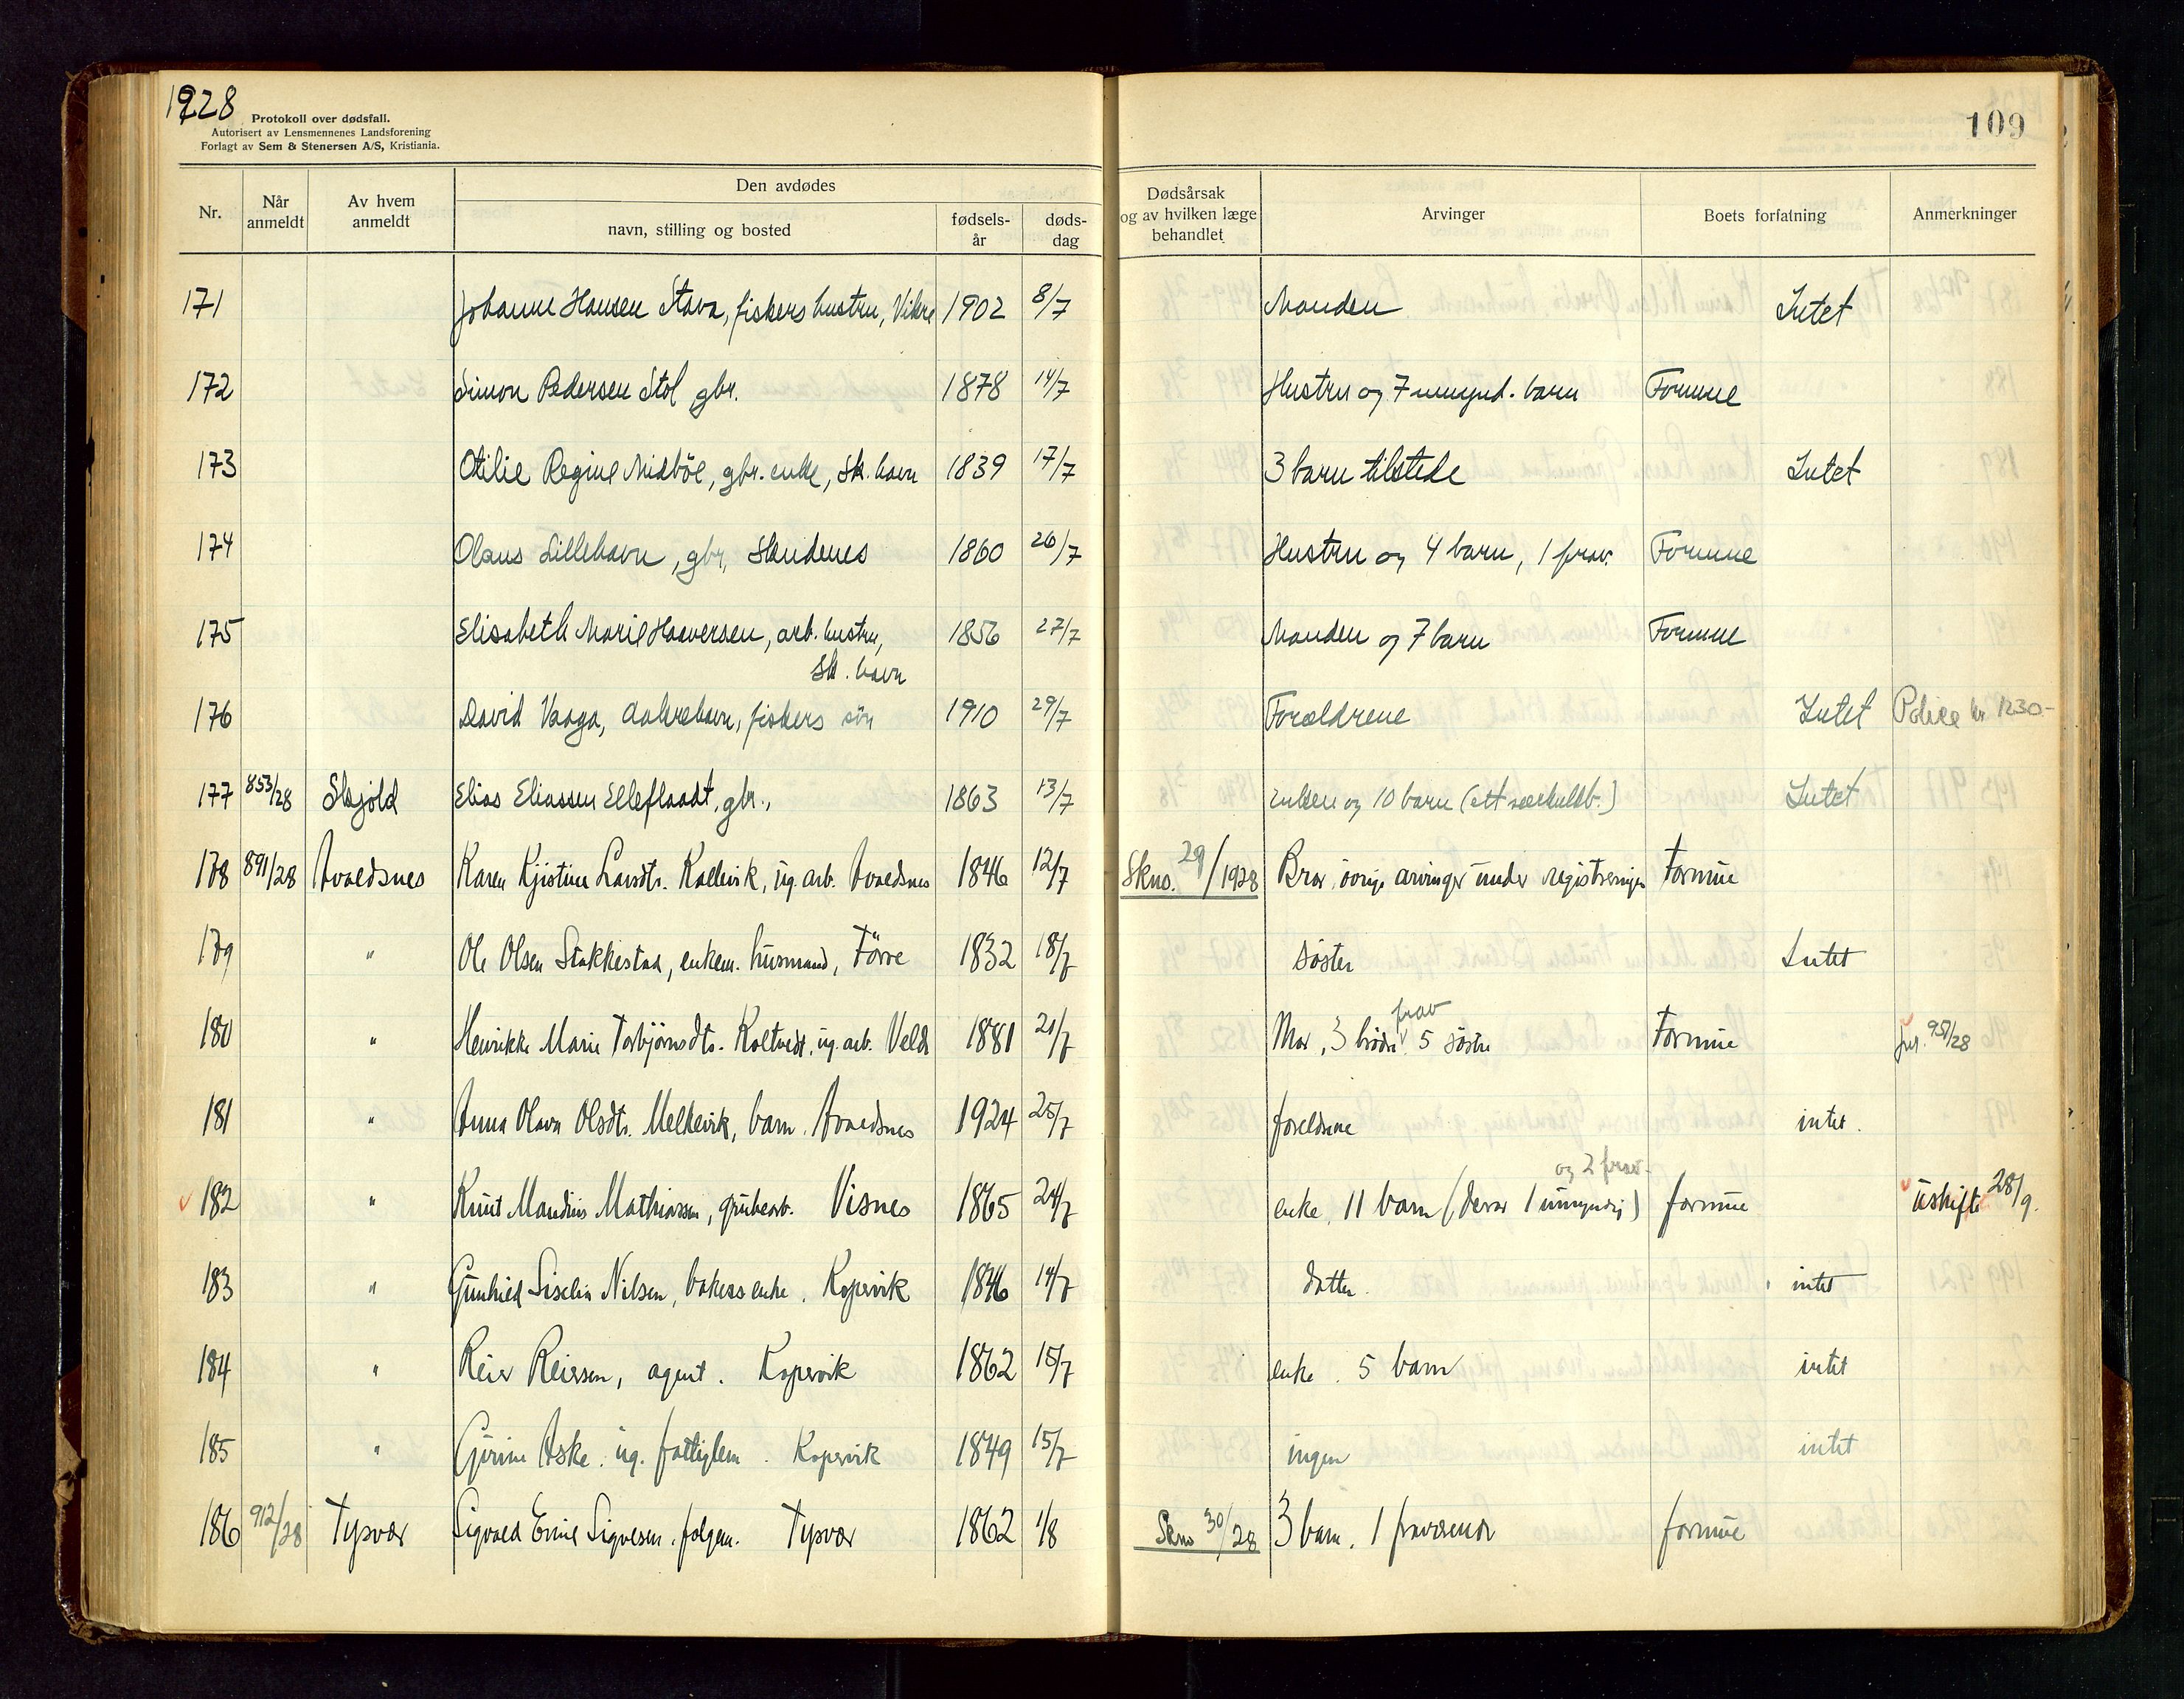 1928
Protokoll over dødsfall.
Autorisert av Lensmennenes Landsforening
Forlagt av Sem & Stenersen A/S, Kristiania.
109
Nr. Når anmeldt Av hvem anmeldt Den avdødes navn, stilling og bosted fødselsår dødsdag Dødsårsak og av hvilken læge behandlet Arvinger Boets forfatning Anmerkninger
171 Johanne Hansen Stava, fiskers hustru, Vikre 1902 8/7 Manden Intet
172 Simon Pedersen Stol gbr. 1878 14/7 Hustru og 7 umynd. barn Formue
173 Otilie Regine Midböe, gbr. enke, Sk. havn 1839 17/7 3 barn tilstede Intet
174 Olaus Lillehavn, gbr, Skudenes 1860 26/7 Hustru og 4 barn, 1 frav. Formue
175 Elisabeth Marie Haaversen, arb. hustru, 1856 27/7 Manden og 7 barn Formue
Sk. havn
176 David Vaaga, Aakrehavn, fiskers sön 1910 29/7 Forældrene Intet Police kr 1230-
177 853/28 Skjold Elias Eliassen Elleflaadt, gbr., 1863 13/7 enken og 10 barn (ett særkullb.) Intet
178 891/28 Avaldsnes Karen Kjistine Larsdtr. Kallevik, ug. arb. Avaldsnes 1846 12/7 Skns. 29/1928 Bror, övrige arvinger under registreringen Formue
179 " Ole Olsen Stakkestad, enkem. husmand, Förre 1832 18/7 söster Intet
180 " Henrikke Marie Torbjörnsdtr. Koltvedt, ug. arb. Velde 1881 21/7 Mor, 3 brödre frav 5 söstre Formue 951/28
181 " Anna Olava Olsdtr. Melkevik, barn. Avaldsnes 1924 25/7 foreldrene intet.
182 " Knut Maudius Mathiassen, grubearb. Visnes 1865 24/7 enke, 11 barn (derav 1 umyndig) og 2 frav. formue uskifte 28/9.
183 " Gunhild Siselia Nilsen, bakers enke. Kopervik 1846 14/7 datter. intet
184 " Reier Reiersen, agent. Kopervik 1862 15/7 enke. 5 barn intet
185 " Gjörine Aske. ug. fattiglem. Kopervik 1849 15/7 ingen intet
186 912/28 Tysvær Sigvald Emil Sigvesen. folgem. Tysvær 1862 1/8 Skns 30/28 3 barn. 1 fraværende formue